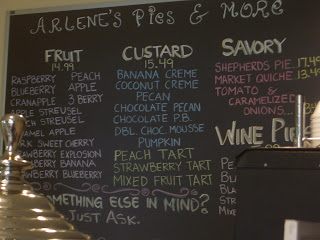 ARLENE'S PIES & MORE
FRUIT
14.99
RASPBERRY PEACH
BLUEBERRY APPLE
CRANAPPLE 3 BERRY
APPLE STREUSEL
PEACH STREUSEL
CARAMEL APPLE
DARK SWEET CHERRY
STRAWBERRY EXPLOSION
STRAWBERRY BANANA
STRAWBERRY BLUEBERRY
CUSTARD
15.49
BANANA CREME
COCONUT CREME
PECAN
CHOCOLATE PECAN
CHOCOLATE P.B.
DBL. CHOC. MOUSSE
PUMPKIN
PEACH TART
STRAWBERRY TART
MIXED FRUIT TART
SAVORY
SHEPHERDS PIE 17.49
MARKET QUICHE 13.
TOMATO &
CARAMELIZED
ONIONS...
WINE PIE
SOMETHING ELSE IN MIND?
JUST ASK.